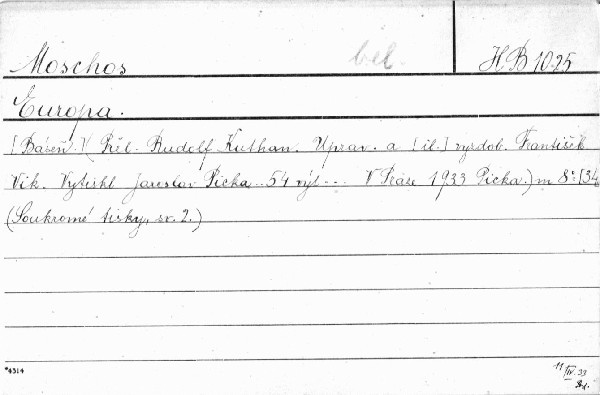 Moschos bel. HB 1025
Europa.
[Báseň.] (Přel. Rudolf Kuthan. Uprav. a [il.] vyzdob. František
Vik. Vytiskl Jaroslav Picka... 54 výt... V Praze 1933 Picka.) m 8° [34
(Soukromé tisky, sv. 2.)
*4314 11/IV.33